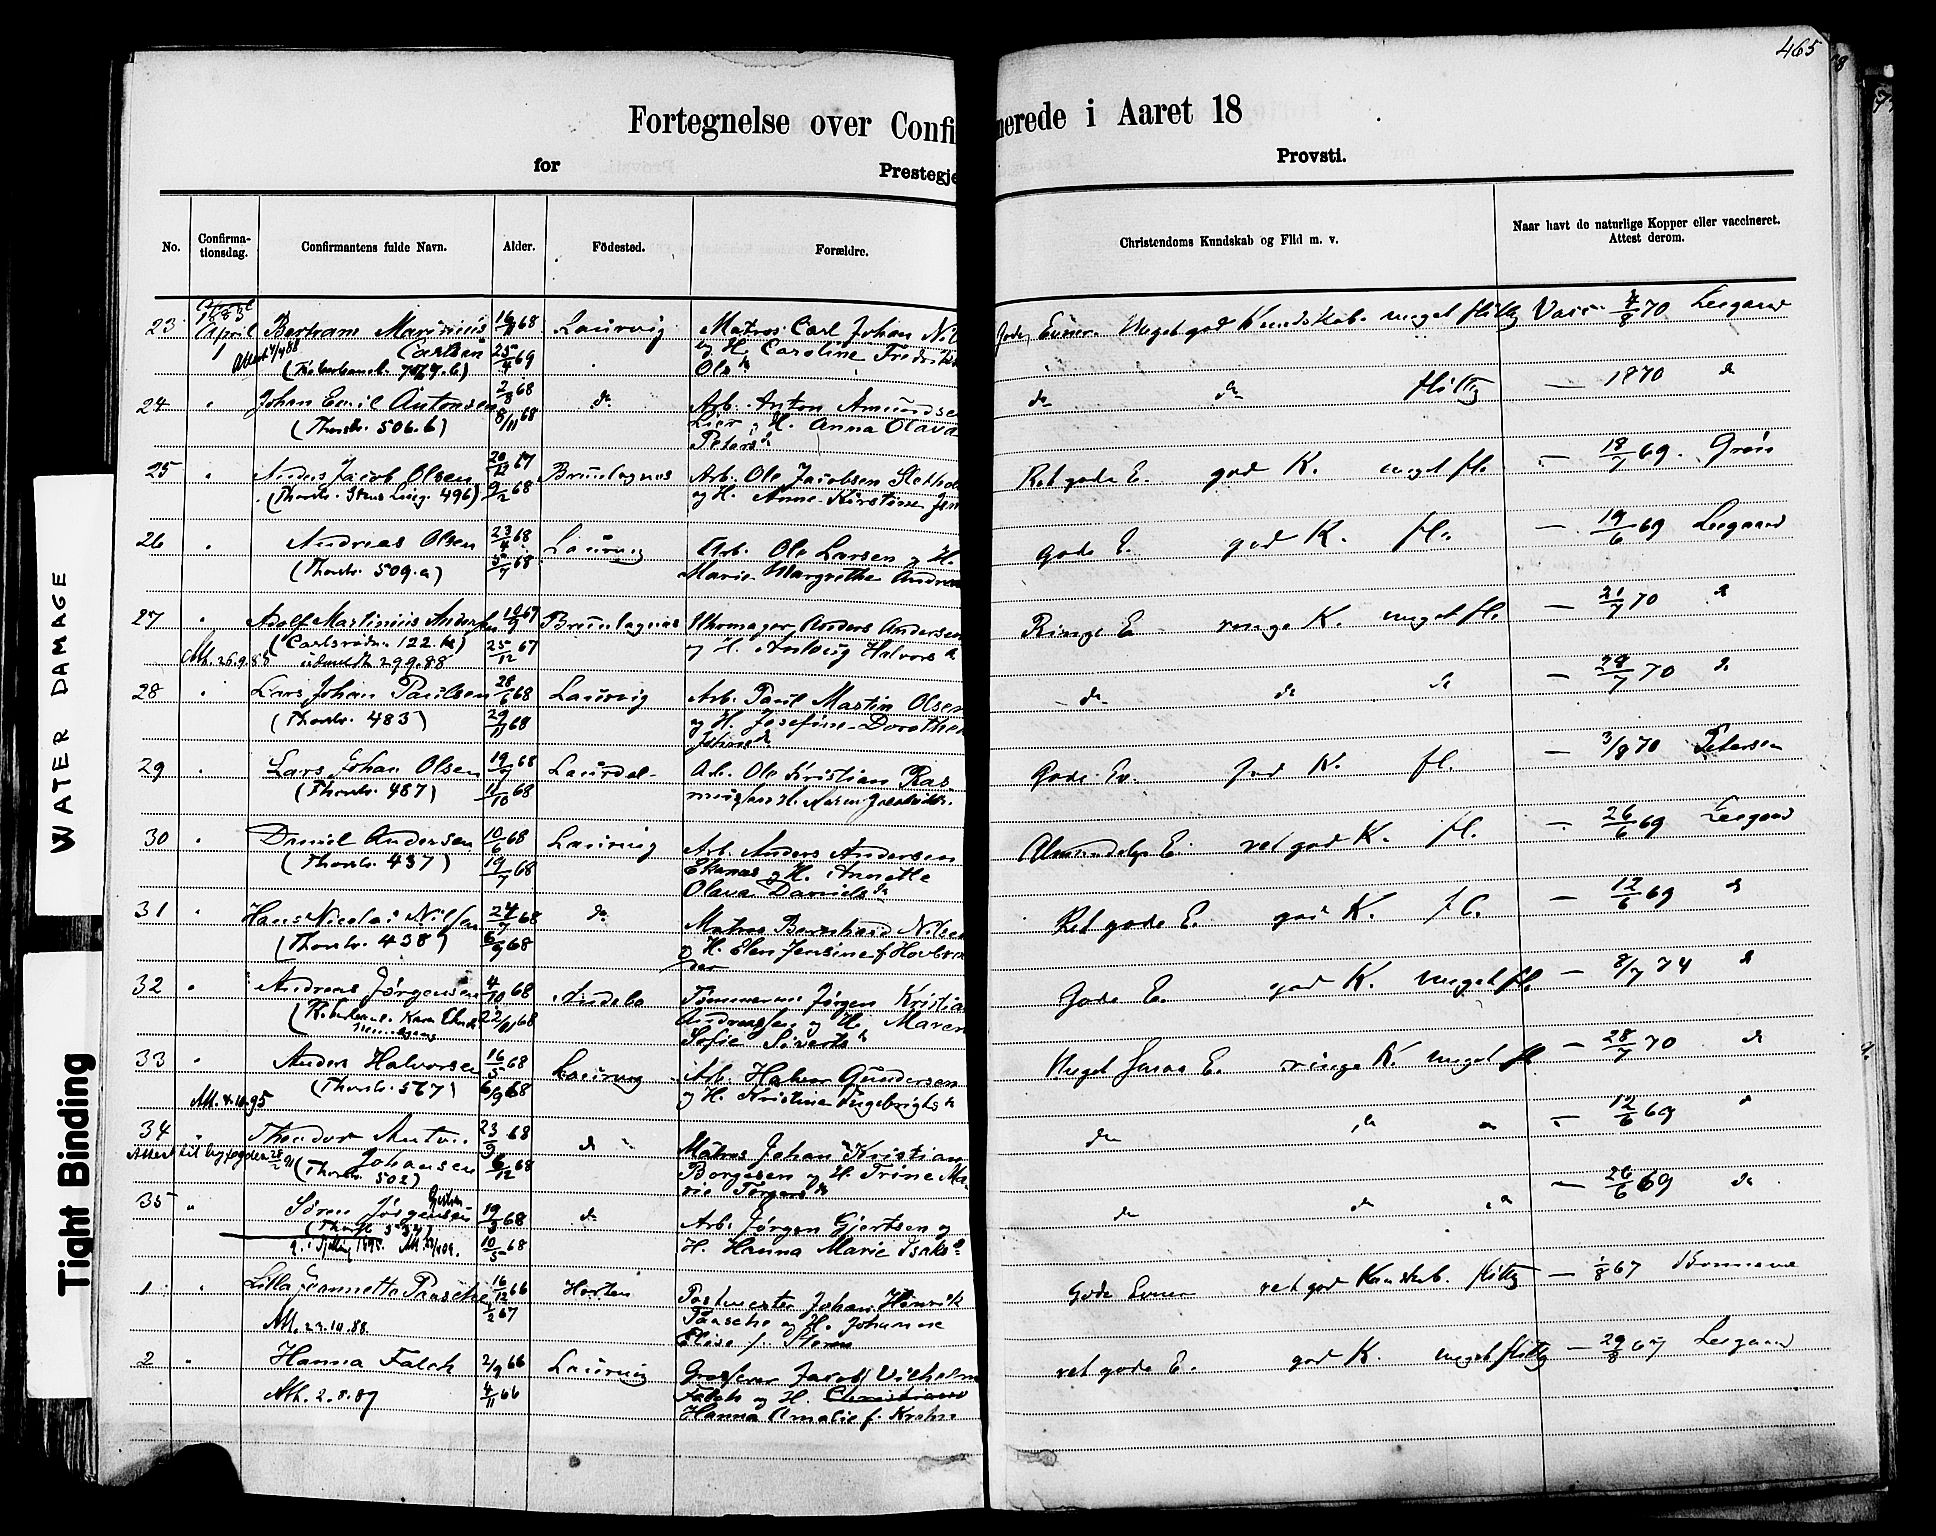 465
Fortegnelse over Confi nerede i Aaret 18
for Prestegje Provsti.
No. Confirma-tionsdag. Confirmantens fulde Navn. Alder. Födested. Forældre. Christendoms Kundskab og Flid m. v. Naar havt de naturlige Kopper eller vaccineret. Attest derom.
23 April Bertram Marinius 16/11 68 Laurvig Matros Carl Johan Nil Gode Evner Meget god Kundskab. meget flittig Vacc. 4/8 70 Leegaard
1 Carlsen 25/4 69 og H. Caroline Fredrikk
Attest 7/4 88 Ols d.
24 " Johan Emil Antonsen 2/8 68 do Arb. Anton Amundse do do flittig — 1870 d
(Thorstr. 506.b) 8/11 68 Lier og H. Anna Olava
Peters d.
25 " Anders Jacob Olsen 20/12 67 Brunlagnes Arb. Ole Jacobsen Ret gode E. god K. meget fl. — 18/7 69. Grøn
496) 9/2 68 og H. Anne Kirstine Jen
26 " Andreas Olsen 23/4 68 Laurvig Arb. Ole Larsen og H. Gode E. god K. fl. — 19/6 69 Leegaard
(Thorstr. 509.a) 5/7 68 Marie Margrethe Andrea
27 " Adolf Martinius Andersen 67 Brunlagnes Uhrmager Anders Andersen Ringe E. ringe K. meget fl. — 21/7 70 d
122. 25/12 67 og H. Halvors d
Att. 26.9.88 udmeldt 299.88
28 " Lars Johan Paulsen 28/6 68 Laurvig Arb. Paul Martin Olsen do do do — 29/7 70 d
(Thorstr. 483) 29/11 68 og H. Josefine Dorothea
Johns d.
29 " Lars Johan Olsen 19/7 68 Laurdal Arb. Ole Kristian Ras Gode Ev. god K. fl. — 3/8 70 Petersen
(Thorstr. 487) 11/10 68
30 " Daniel Andersen 10/6 68 Laurvig Arb. Anders Andersen Almindelige E. ret god K. fl. — 26/6 69 Leegaard
(Thorstr. 437) 19/7 68 Ekenes og H. Annette
Olava Daniels d.
31 " Hans Nicolai Nilsen 24/7 68 do Matros Bernhard Nilsen Ret gode E. god K. fl. — 12/6 69 d
(Thorstr. 438) 6/9 68 og H. Elen Jensine f. Hovbra
32 " Andreas Jørgensen 4/10 68 Andebo Tømmermd Jørgen Kristia Gode E. god K. meget fl. — 8/7 74 d
22/11 68 Andreassen og H. Maren
Sofie Siverts d.
33 " Anders Halvorsen 16/5 68 Laurvig Arb. Halvor Gundersen Meget smaa E. ringe K. meget fl — 28/7 70 do
(Thorstr. 567) 6/9 68 og H. Kristine Ingebrigts d.
Att. 4.10.95
34 " Theodor Anton 23/9 68 do Matros Johan Kristian do do do — 12/6 69 d
Attest til byfogden 28/2 91 Johansen 6/12 68 Borgesen og H. Trine Ma
(Thorstr. 502) rie Torgers d.
35 " Søren Jørgensen 19/3 68 do Arb. Jørgen Gjertsen og do do do — 26/6 69 do
(Thorstr. 554) 10/5 68 H. Hanna Marie Isaks d.
1 " Lilla Jeannette Paasche 16/12 66 Horten Postmester Johan Henrik Gode Evner ret god Kundskab. flittig — 1/8 67 Bonnevie
Att. 23.10.88 1/2 67 Paasche og H. Johanne
Elise f. Steen
2 " Hanna Falch 2/9 66 Laurvig Grosserer Jacob Vilhelm ret gode E. god K. meget flittig — 29/8 67 Leegaard
Att. 2.8.87 4/11 66 Falch og H. Christiane
Hanna Amalie f. Krohn
WATER DAMAGE
Tight Binding